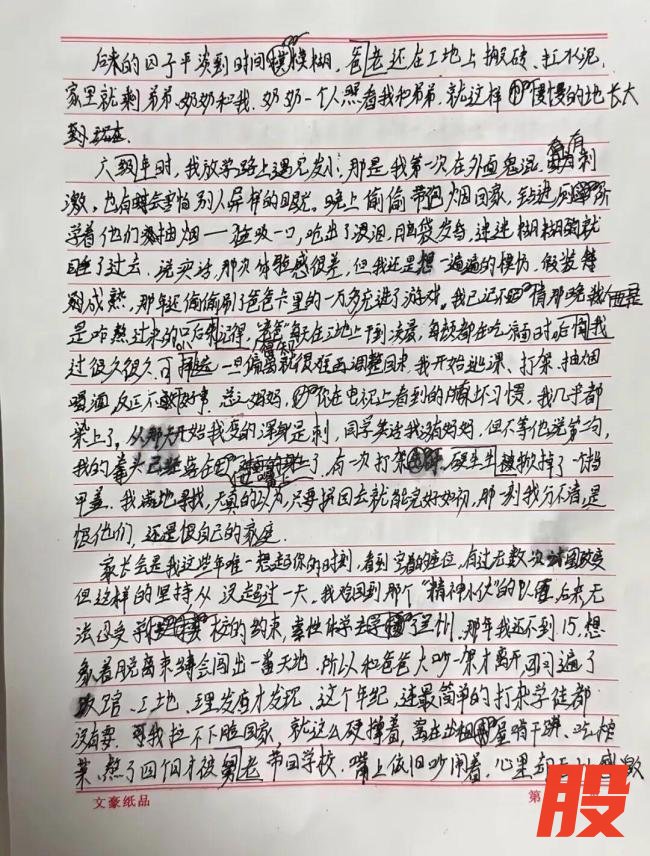 后来的日子平淡到时间模糊，爸爸还在工地上搬砖、扛水泥，
家里就剩弟弟、奶奶和我，奶奶一个人照看我和弟弟，就这样慢慢的地长大
到现在。
六年级时，我放学路上遇见发小，那是我第一次在外面鬼混，有刺
激，也有害怕别人异样的眼光。晚上偷偷带包烟回家，钻进厕所
学着他们抽烟——猛吸一口，呛出了眼泪，脑袋发昏，迷迷糊糊就
睡了过去。说实话，那次体验感很差，但我还是想一遍遍的模仿，假装
成熟，那年还偷偷刷了爸爸卡里的一万多充进了游戏。我已记不那晚我
是咋熬过来的只后来记得，爸爸每天在工地上干到凌晨，每顿都在吃泡面时，后悔我
过很久很久，可一旦偏离就很难再调整回来，我开始逃课、打架、抽烟
喝酒，反正不好事，总之妈妈，你在电视上看到的坏习惯，我几乎都
染上了。从那天开始我变的浑身是刺，同学笑话我没有妈妈，但不等他说第二句，
我的拳头已经落在了，有一次打架，硬生生被掀掉了一个指
甲盖，我满地寻找，天真的以为只要捡回去就能完好如初，那一刻我分不清，是
恨他们，还是恨自己的家庭。
家长会是我这些年唯一想起你的时刻，看到空着的座位，有过无数次改变
但这样的坚持从没超过一天。我难回到那个“精神小伙”的队伍，后来，无
法忍受学校的约束，索性休学去了兰州，那年我还不到15，想
象着脱离束缚会闯出一番天地，所以和爸爸大吵一架才离开，可问遍了
饭馆、工地、理发店才发现，这个年纪，连最简单的打杂学徒都
没有要，可我拉不下脸回家，就这么硬撑着，窝在出租屋啃干饼、吃榨
菜，熬了四个才被舅老带回学校，嘴上依旧吵闹着，心里却感激
文豪纸品
第
股